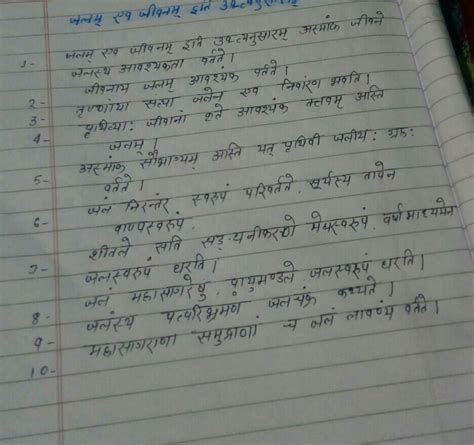 जलम् एव जीवनम् इति उक्त्यनुसारम्
1- जलम् एव जीवनम् इति उक्त्यनुसारम् अस्माकं जीवने
जलस्य आवश्यकता वर्तते।
2- जीवनाय जलम् आवश्यकं वर्तते।
3- तृष्णायां सत्यां जलेन एव निवारणं भवति।
4- पृथिव्याः जीवानां कृते आवश्यकं तत्वम् अस्ति
जलम्।
5- अस्माकं सौभाग्यम् अस्ति यत् पृथिवी जलीयः ग्रहः
वर्तते।
6- जलं निरन्तरं स्वरूपं परिवर्तते. सूर्यस्य तापेन
वाष्पस्वरूपं.
7- शीतले सति मेघस्वरूपं. वर्षामाध्यमेन
जलस्वरूपं धरति।
8- जलं महासागरेषु. वायुमण्डले जलस्वरूपं धरति।
9- जलस्य जलचक्रं कथ्यते।
10- महासागराणां समुद्राणां च जलं लावण्यं वर्तते।